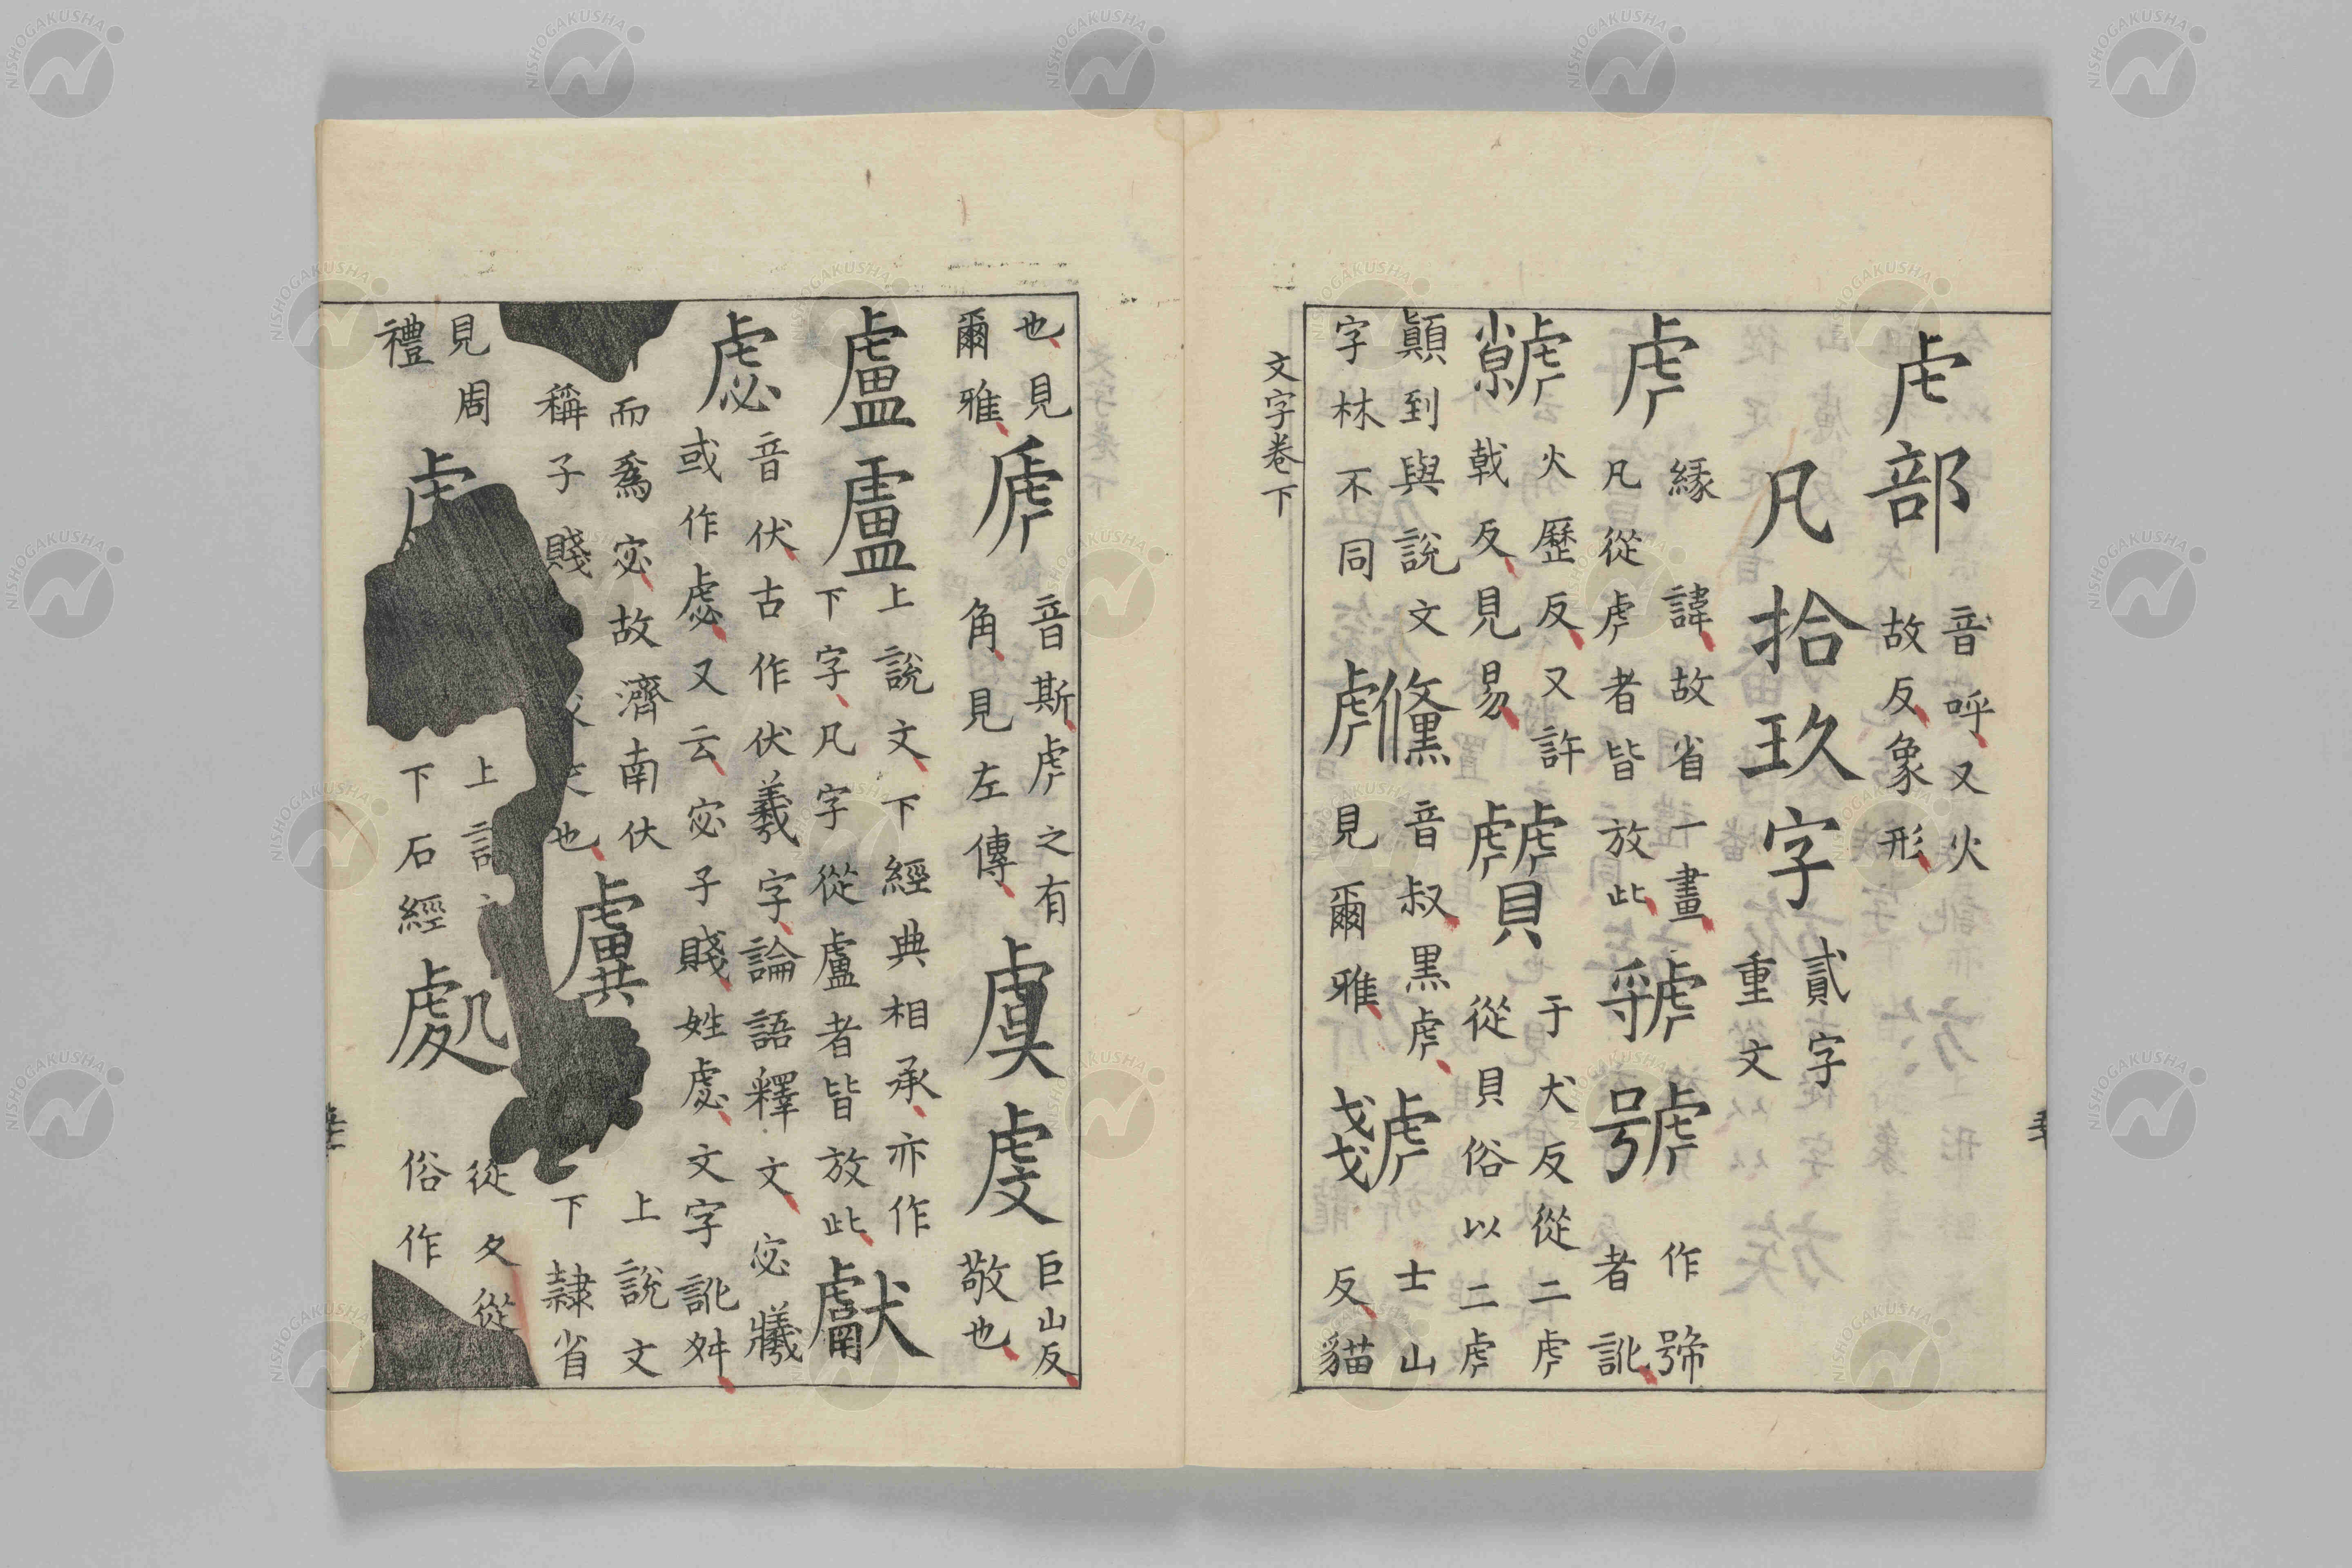 虍部 音呼又火
故反象形
凡拾玖字 貳字
重文
虎 緣諱故省一畫
凡從虎者皆放此
虢號 作
者訛
虩 火歷反又許
戟反見易
贙 于犬反從二虎
從貝俗以二虎
顛到與說文
字林不同
虪 音叔黑虎
見爾雅
虦 士山
反貓
文字卷下
也見
爾雅
虒 音斯虎之有
角見左傳
虞虔 巨山反
敬也
盧 上說文下經典相承亦作
下字凡字從盧者皆放此
獻
虙 音伏古作伏羲字論語釋文宓犧
或作虙又云宓子賤姓虙文字訛舛
而爲宓故濟南伏
稱子賤
也
上說文
下隸省
見周
禮
上
下石經
處 從夂從
俗作